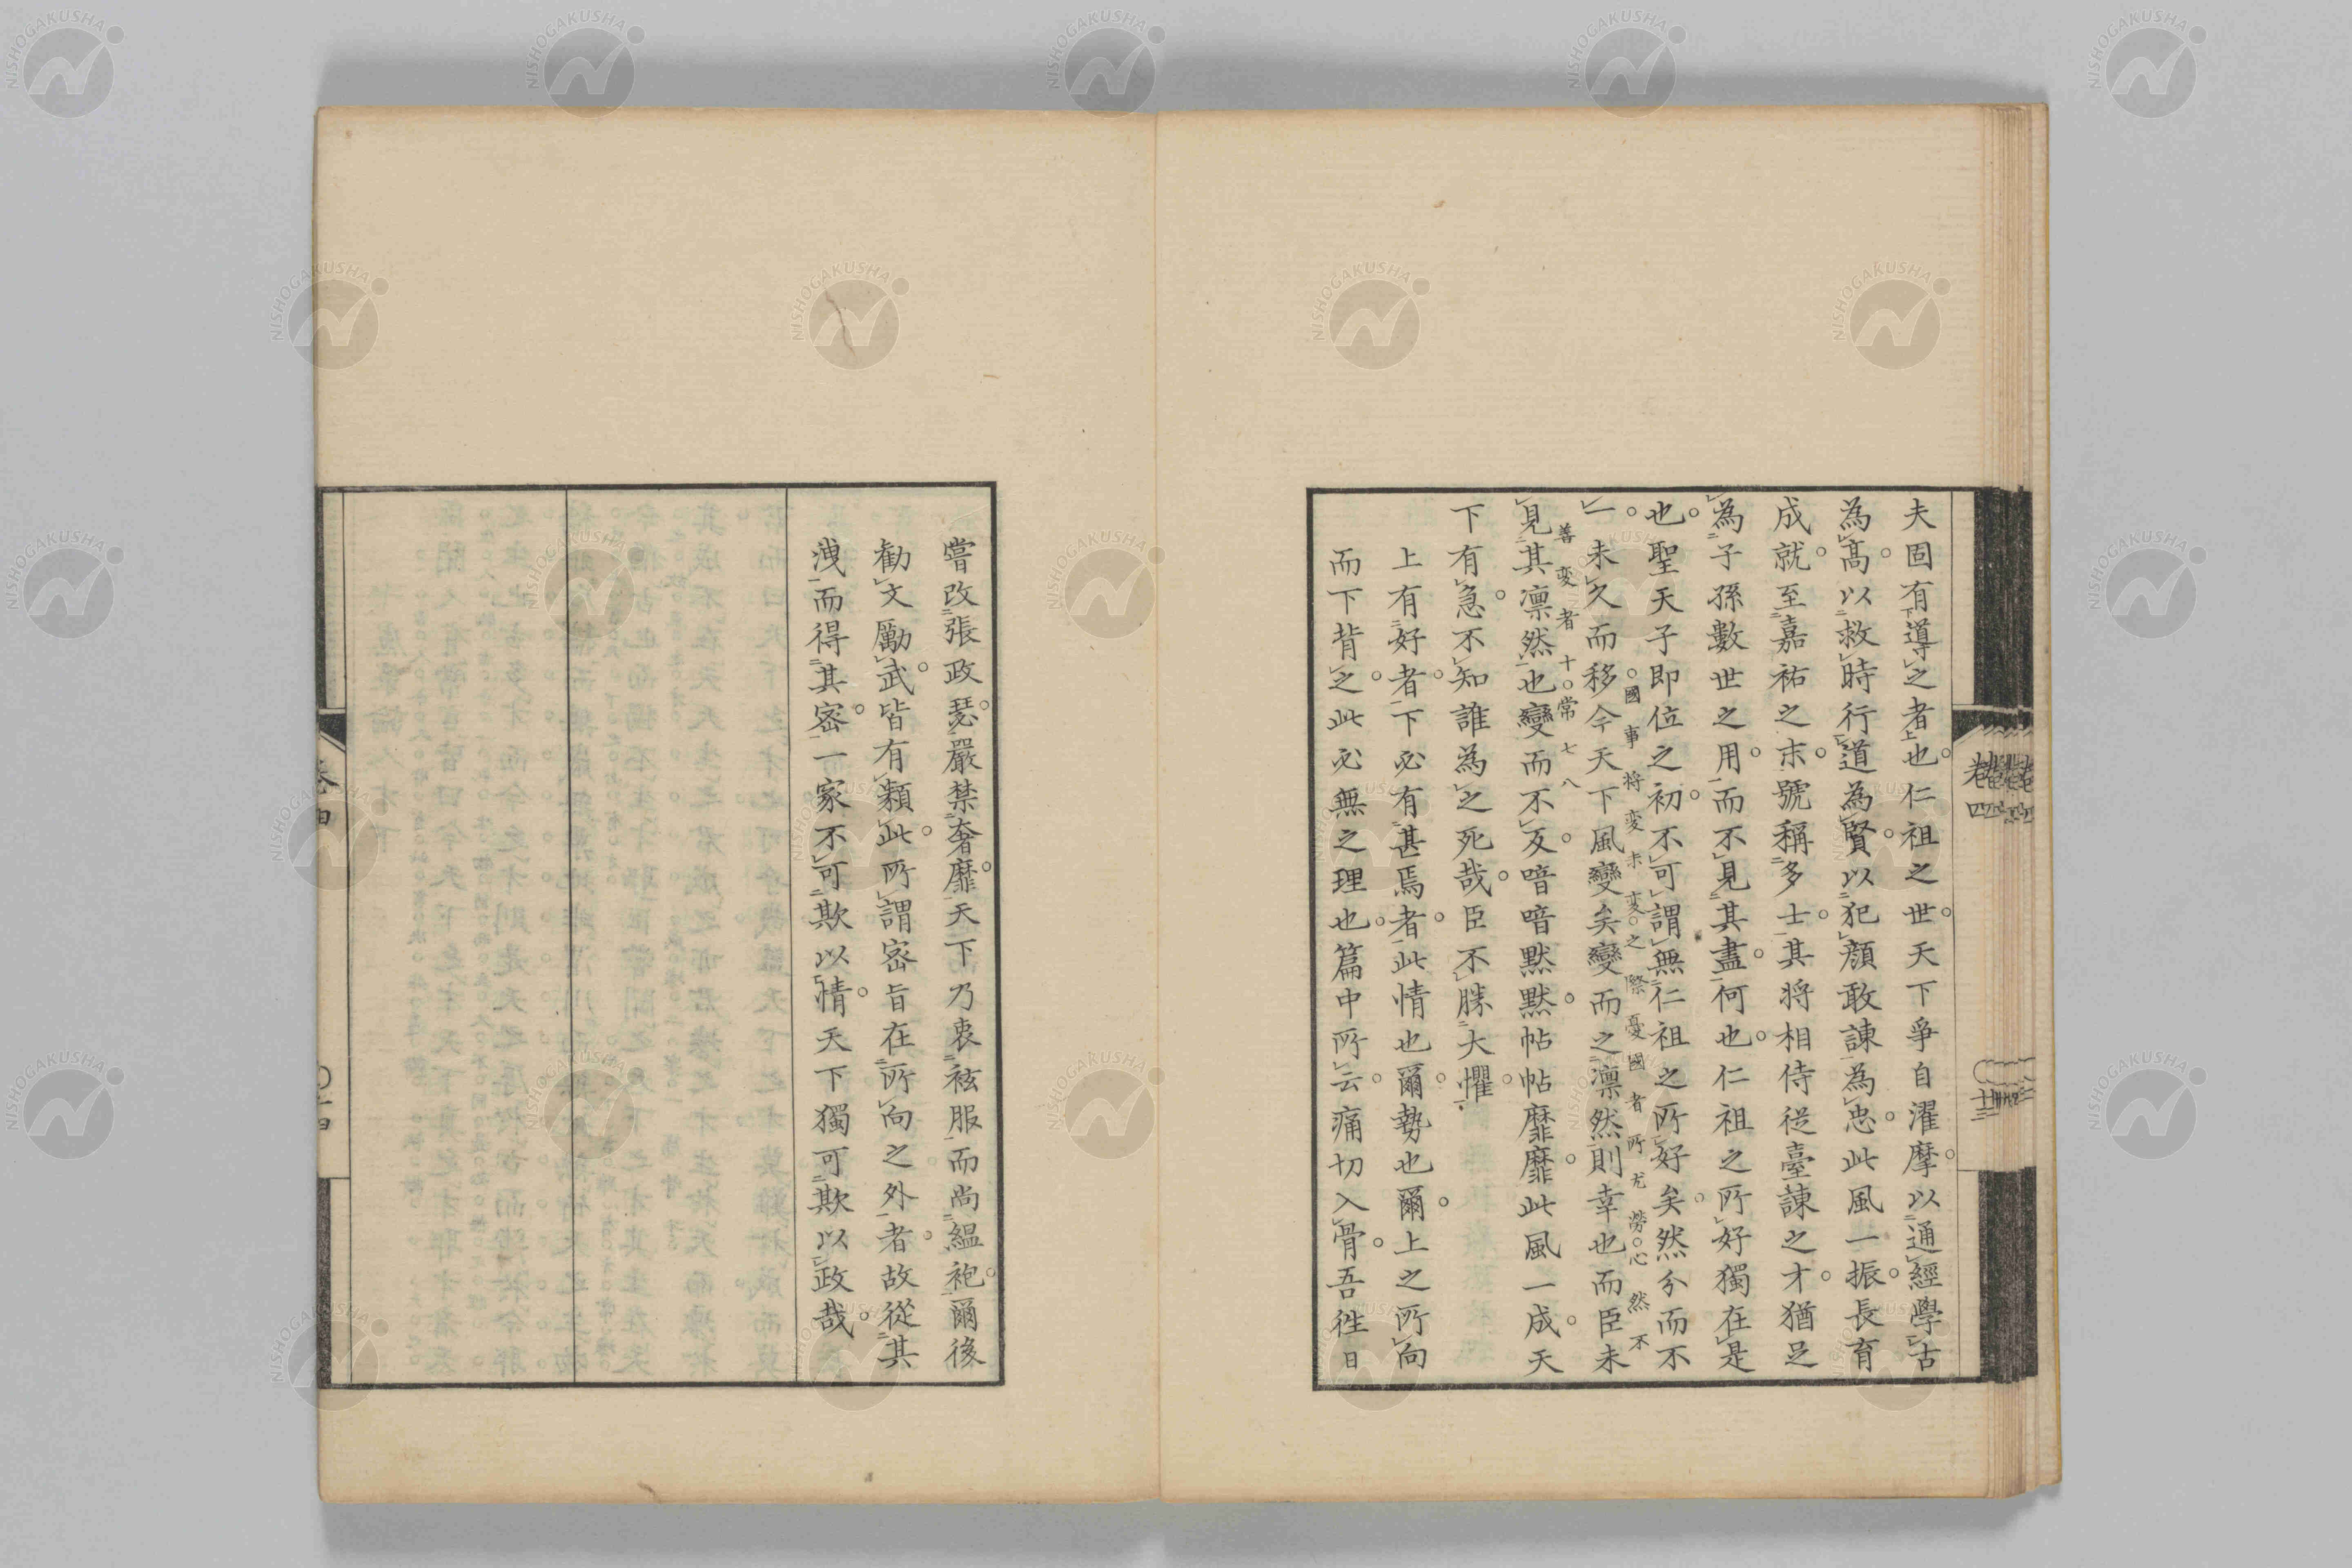 夫固有道之者也仁祖之世天下爭自濯摩以通經學古
為高以救時行道為賢以犯顏敢諫為忠此風一振長育
成就至嘉祐之末號稱多士其将相侍從臺諫之才猶足
為子孫數世之用而不見其盡何也仁祖之所好獨在是
也聖天子即位之初不可謂無仁祖之所好矣然分而不
國事将変未変之際憂國者所尤勞心然不
一未久而移今天下風變矣變而之凛然則幸也而臣未
善変者十常七八
見其凛然也變而不反喑喑默默帖帖靡靡此風一成天
下有急不知誰為之死哉臣不勝大懼
上有好者下必有甚焉者此情也爾勢也爾上之所向
而下背之此必無之理也篇中所云痛切入骨吾徃日
嘗改張政瑟嚴禁奢靡天下乃衷袨服而尚縕袍爾後
勧文勵武皆有類此所謂宻旨在所向之外者故從其
洩而得其宻一家不可欺以情天下獨可欺以政哉
卷四
卷四
十三
NISHOGAKUSHA